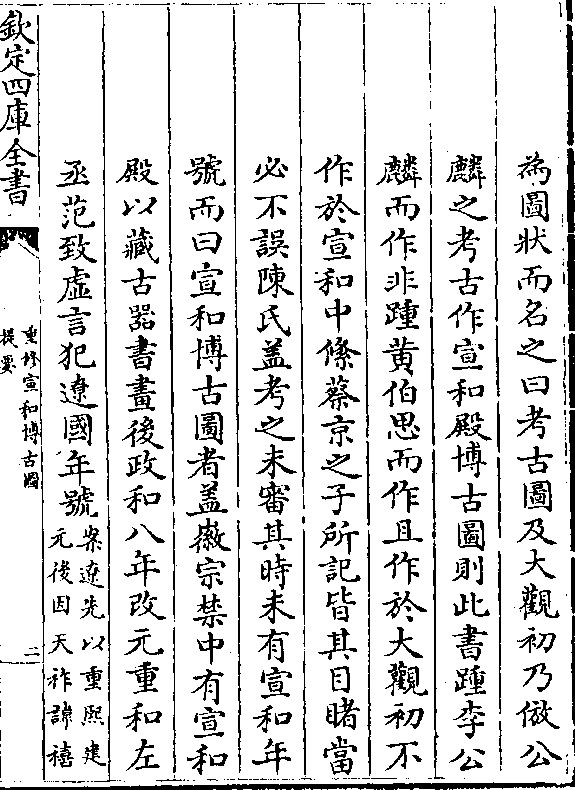 為圖狀而名之曰考古圖及大觀初乃倣公
麟之考古作宣和殿博古圖則此書踵李公
麟而作非踵黄伯思而作且作於大觀初不
作於宣和中絛蔡京之子所記皆其目睹當
必不誤陳氏盖考之未審其時未有宣和年
號而曰宣和博古圖者盖徽宗禁中有宣和
殿以藏古器書畫後政和八年改元重和左
丞范致虛言犯遼國年號
案遼先以重熙建
元後因天祚諱禧
欽定四庫全書
重修宣和博古圖
提要
二